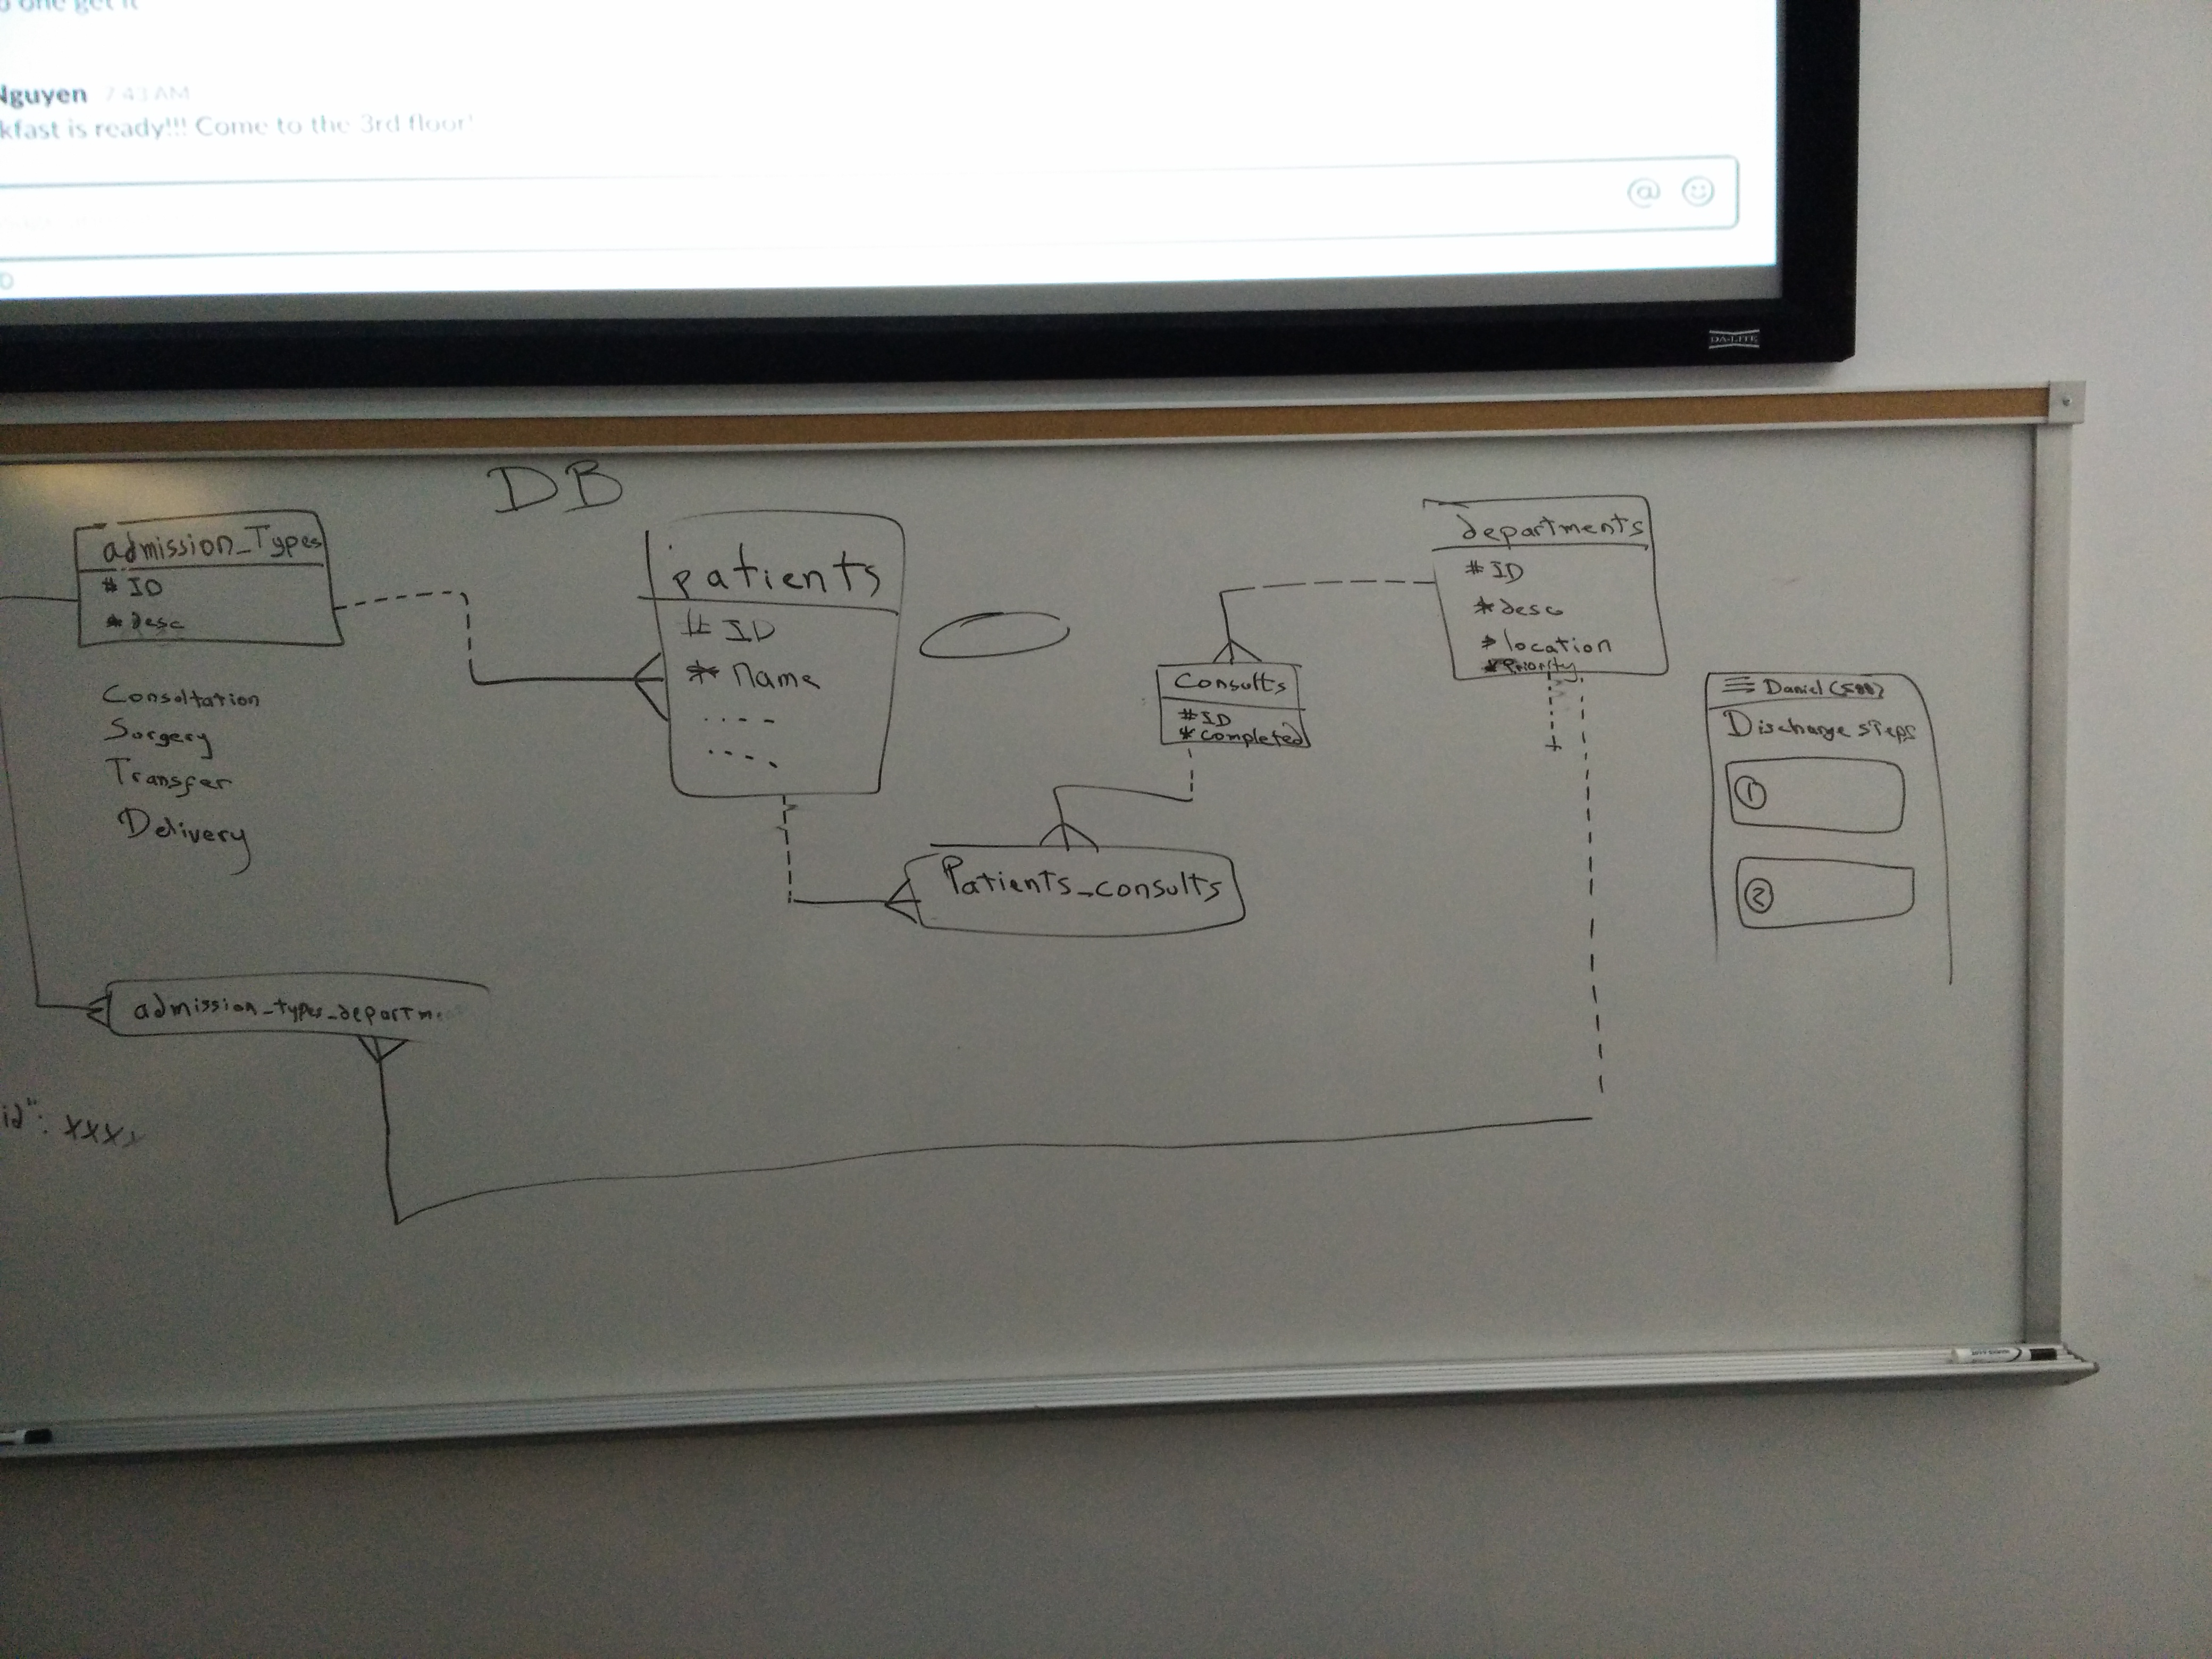 one get it
Nguyen 7:43 AM
kfast is ready!!! Come to the 3rd floor!
@
DA-LITE
DB
admission_Types
# ID
* desc
Consoltation
Sorgery
Transfer
Delivery
patients
# ID
* Name
Consults
# ID
* Completed
departments
# ID
* desc
* location
* Priority
Patients_consults
admission_types_departm
id": xxxx
Daniel
Discharge steps
1
2